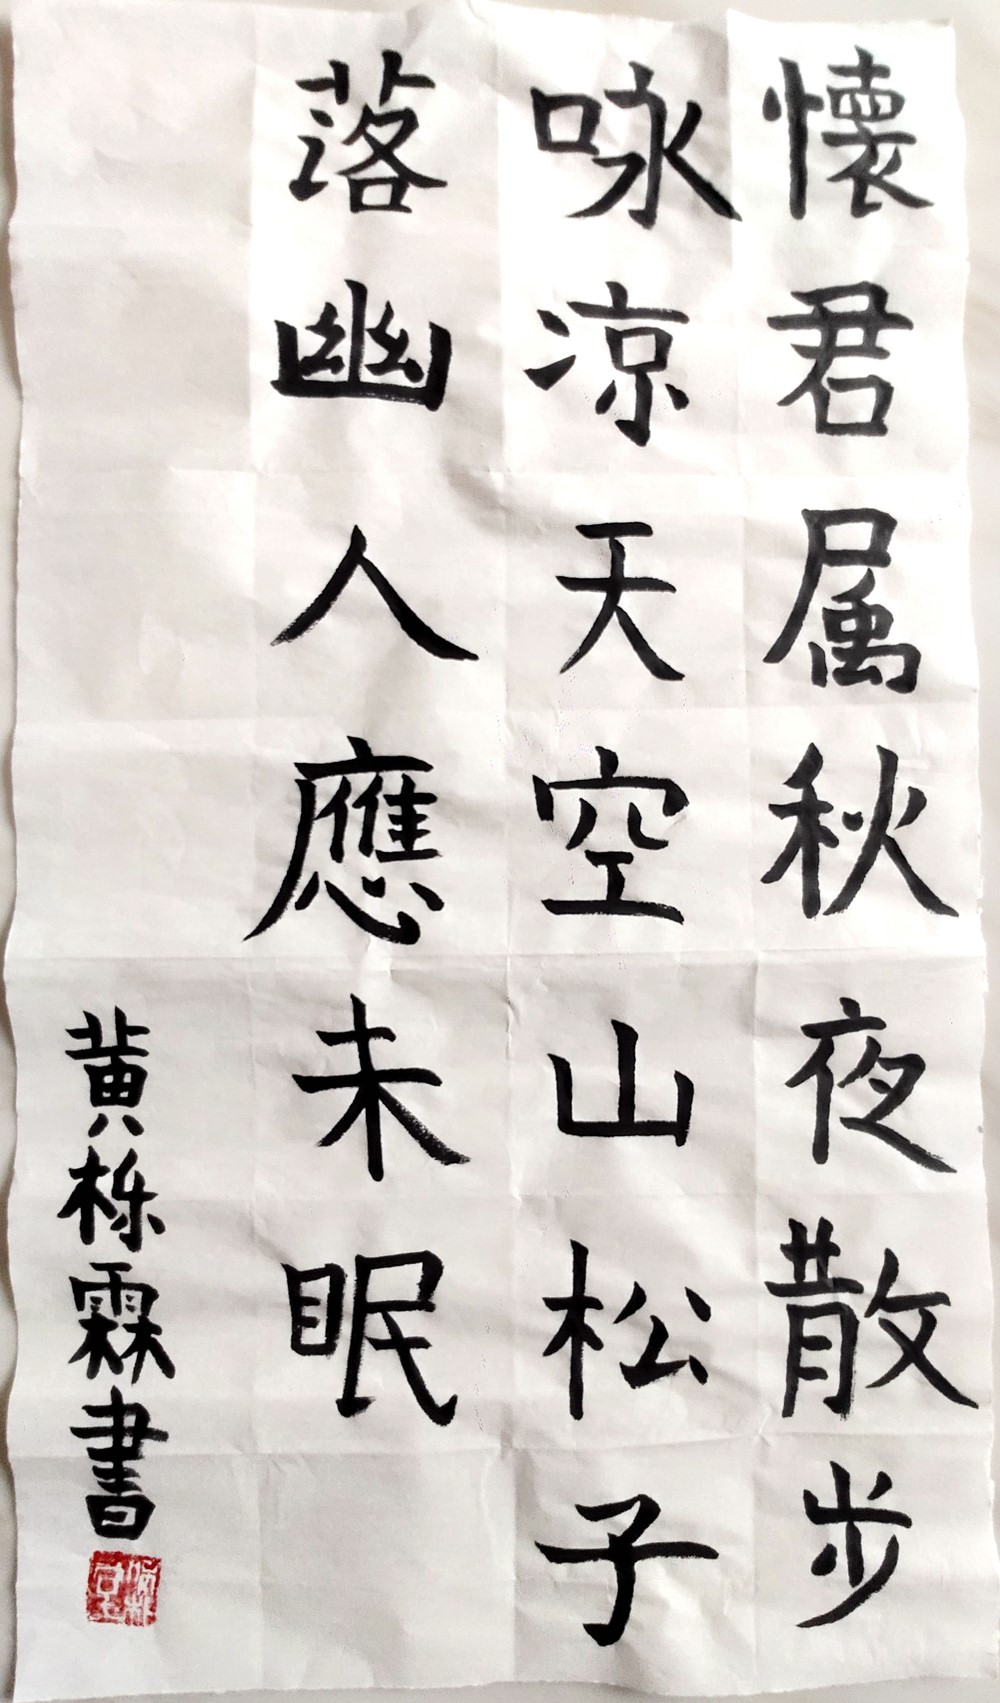 懷君属秋夜散步
咏凉天空山松子
落幽人應未眠
黄栎霖書